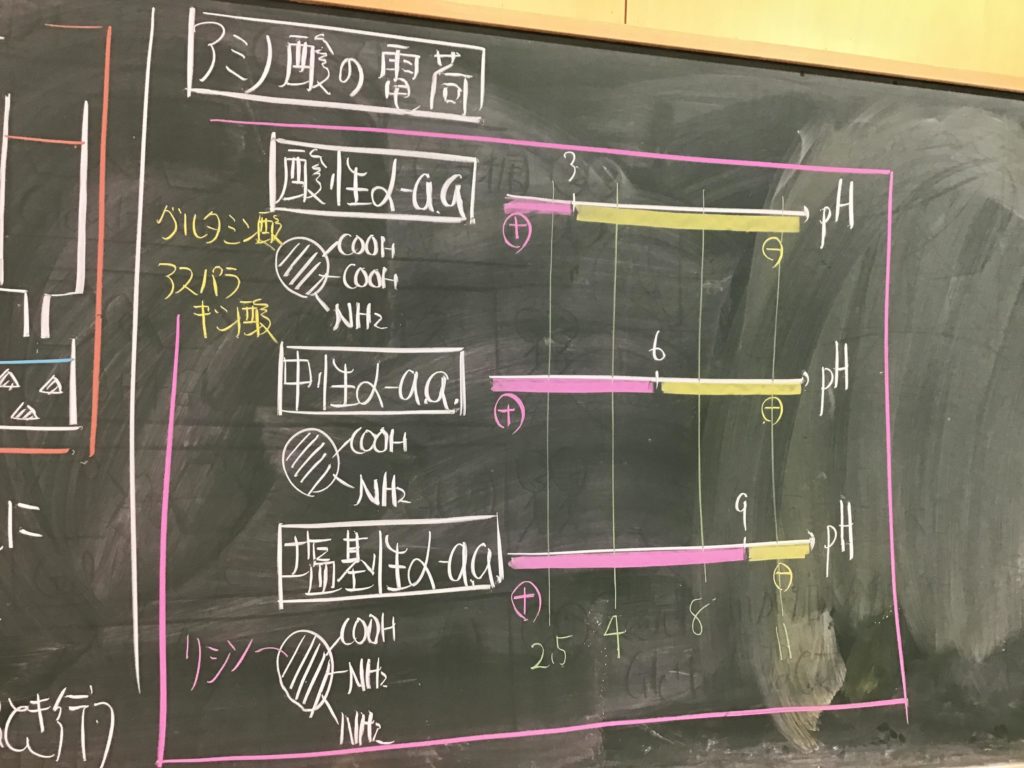 アミノ酸の電荷
酸性α-a.a
グルタミン酸
アスパラ
ギン酸
COOH
COOH
NH₂
3
pH
⊕
⊖
中性α-a.a.
COOH
NH₂
6
pH
⊕
⊕
塩基性α-a.a
リシン
COOH
NH₂
NH₂
9
pH
⊕
⊕
2.5 4 8 11
に
とき行う